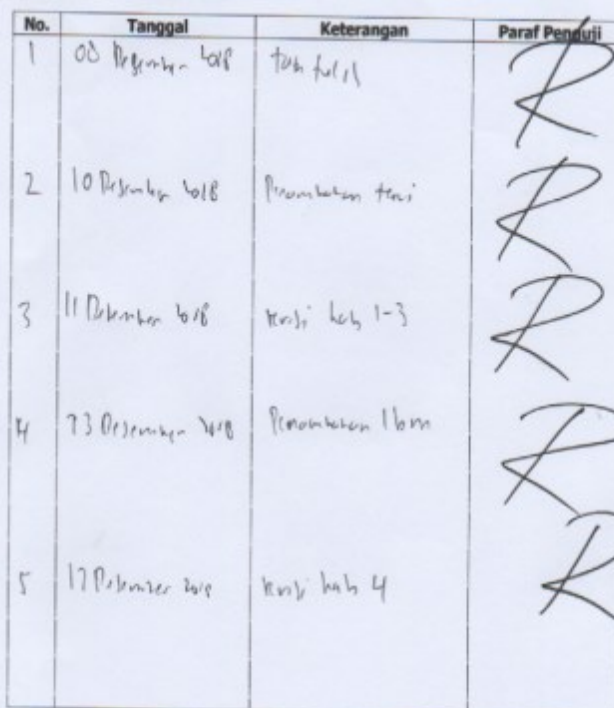 No. Tanggal Keterangan Paraf Penguji
1 Desember 2018
2 10 Desember 2018 Penambahan teori
3 11 Desember 2018 revisi bab 1-3
4 Desember 2018 Penambahan
5 Desember 2018 revisi bab 4